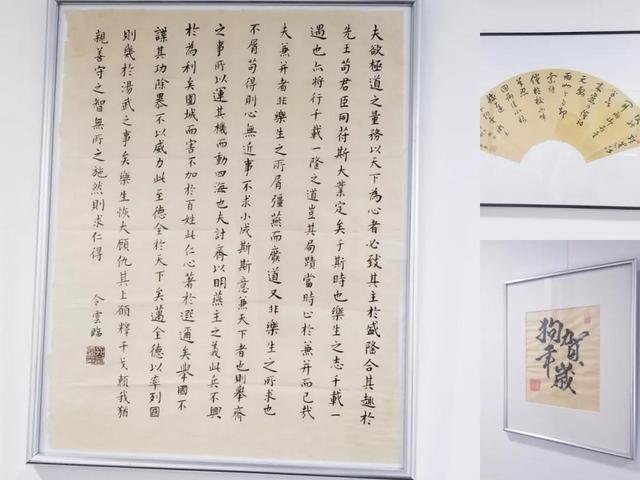 夫欲極道之量務以天下為心者必致其主於盛隆合其趣於
先王苟君臣同苻斯大業定矣于斯時也樂生之志千載一
遇也亦將行千載一隆之道豈其局蹟當時止於兼并而已哉
夫兼并者非樂生之所屑彊燕而廢道又非樂生之所求也
不屑苟得則心無近事不求小成斯斯意兼天下者也則舉齊
之事所以運其機而動四海也夫討齊以明燕主之義此兵不興
於為利矣圍城而害不加於百姓此仁心著於遐邇矣舉國不
謀其功除暴不以威力此至德全於天下矣邁全德以率列國
則幾於湯武之事矣樂生恢大顧仇其上願釋干戈賴我猶
親善守之智無所之施然則求仁得
令雲臨
賀歲
狗年